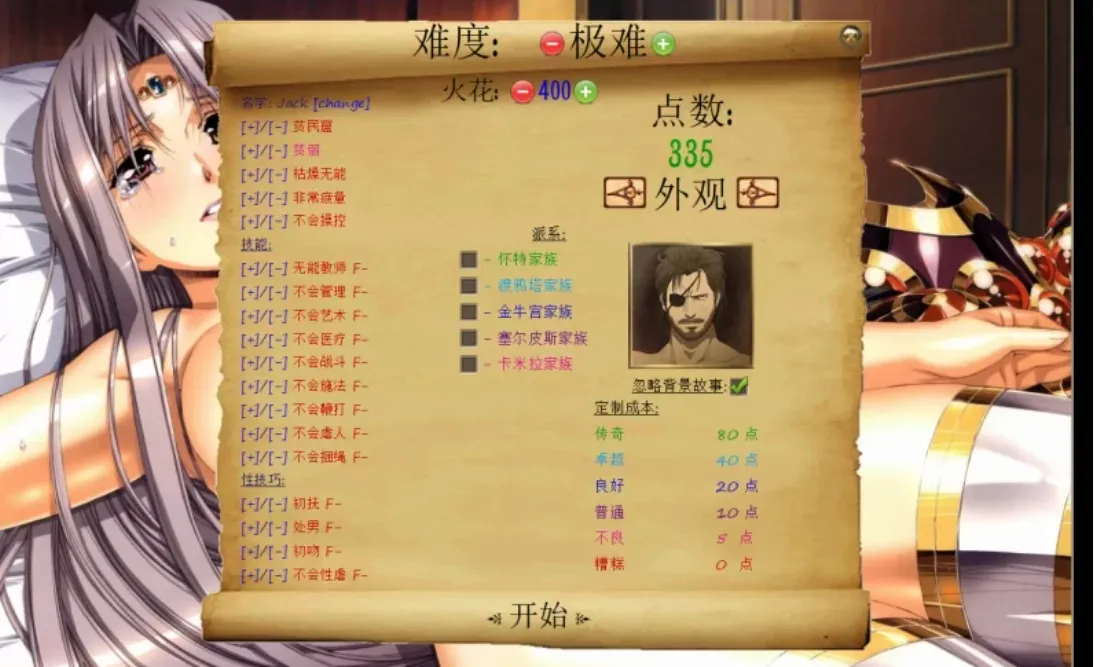 难度: 极难
火花: 400
名字: Jack [change]
[+]/[-] 贫民窟
[+]/[-] 贫困
[+]/[-] 枯燥无能
[+]/[-] 非常疲量
[+]/[-] 不会操控
技能:
[+]/[-] 无能教师 F-
[+]/[-] 不会管理 F-
[+]/[-] 不会艺术 F-
[+]/[-] 不会医疗 F-
[+]/[-] 不会战斗 F-
[+]/[-] 不会施法 F-
[+]/[-] 不会鞭打 F-
[+]/[-] 不会虐人 F-
[+]/[-] 不会捆绳 F-
性技巧:
[+]/[-] 初抚 F-
[+]/[-] 处男 F-
[+]/[-] 初吻 F-
[+]/[-] 不会性虐 F-
派系:
- 怀特家族
- 渡鸦塔家族
- 金牛宫家族
- 塞尔皮斯家族
- 卡米拉家族
点数:
335
外观
忽略背景故事:
定制成本:
传奇 80 点
卓越 40 点
良好 20 点
普通 10 点
不良 5 点
糟糕 0 点
开始